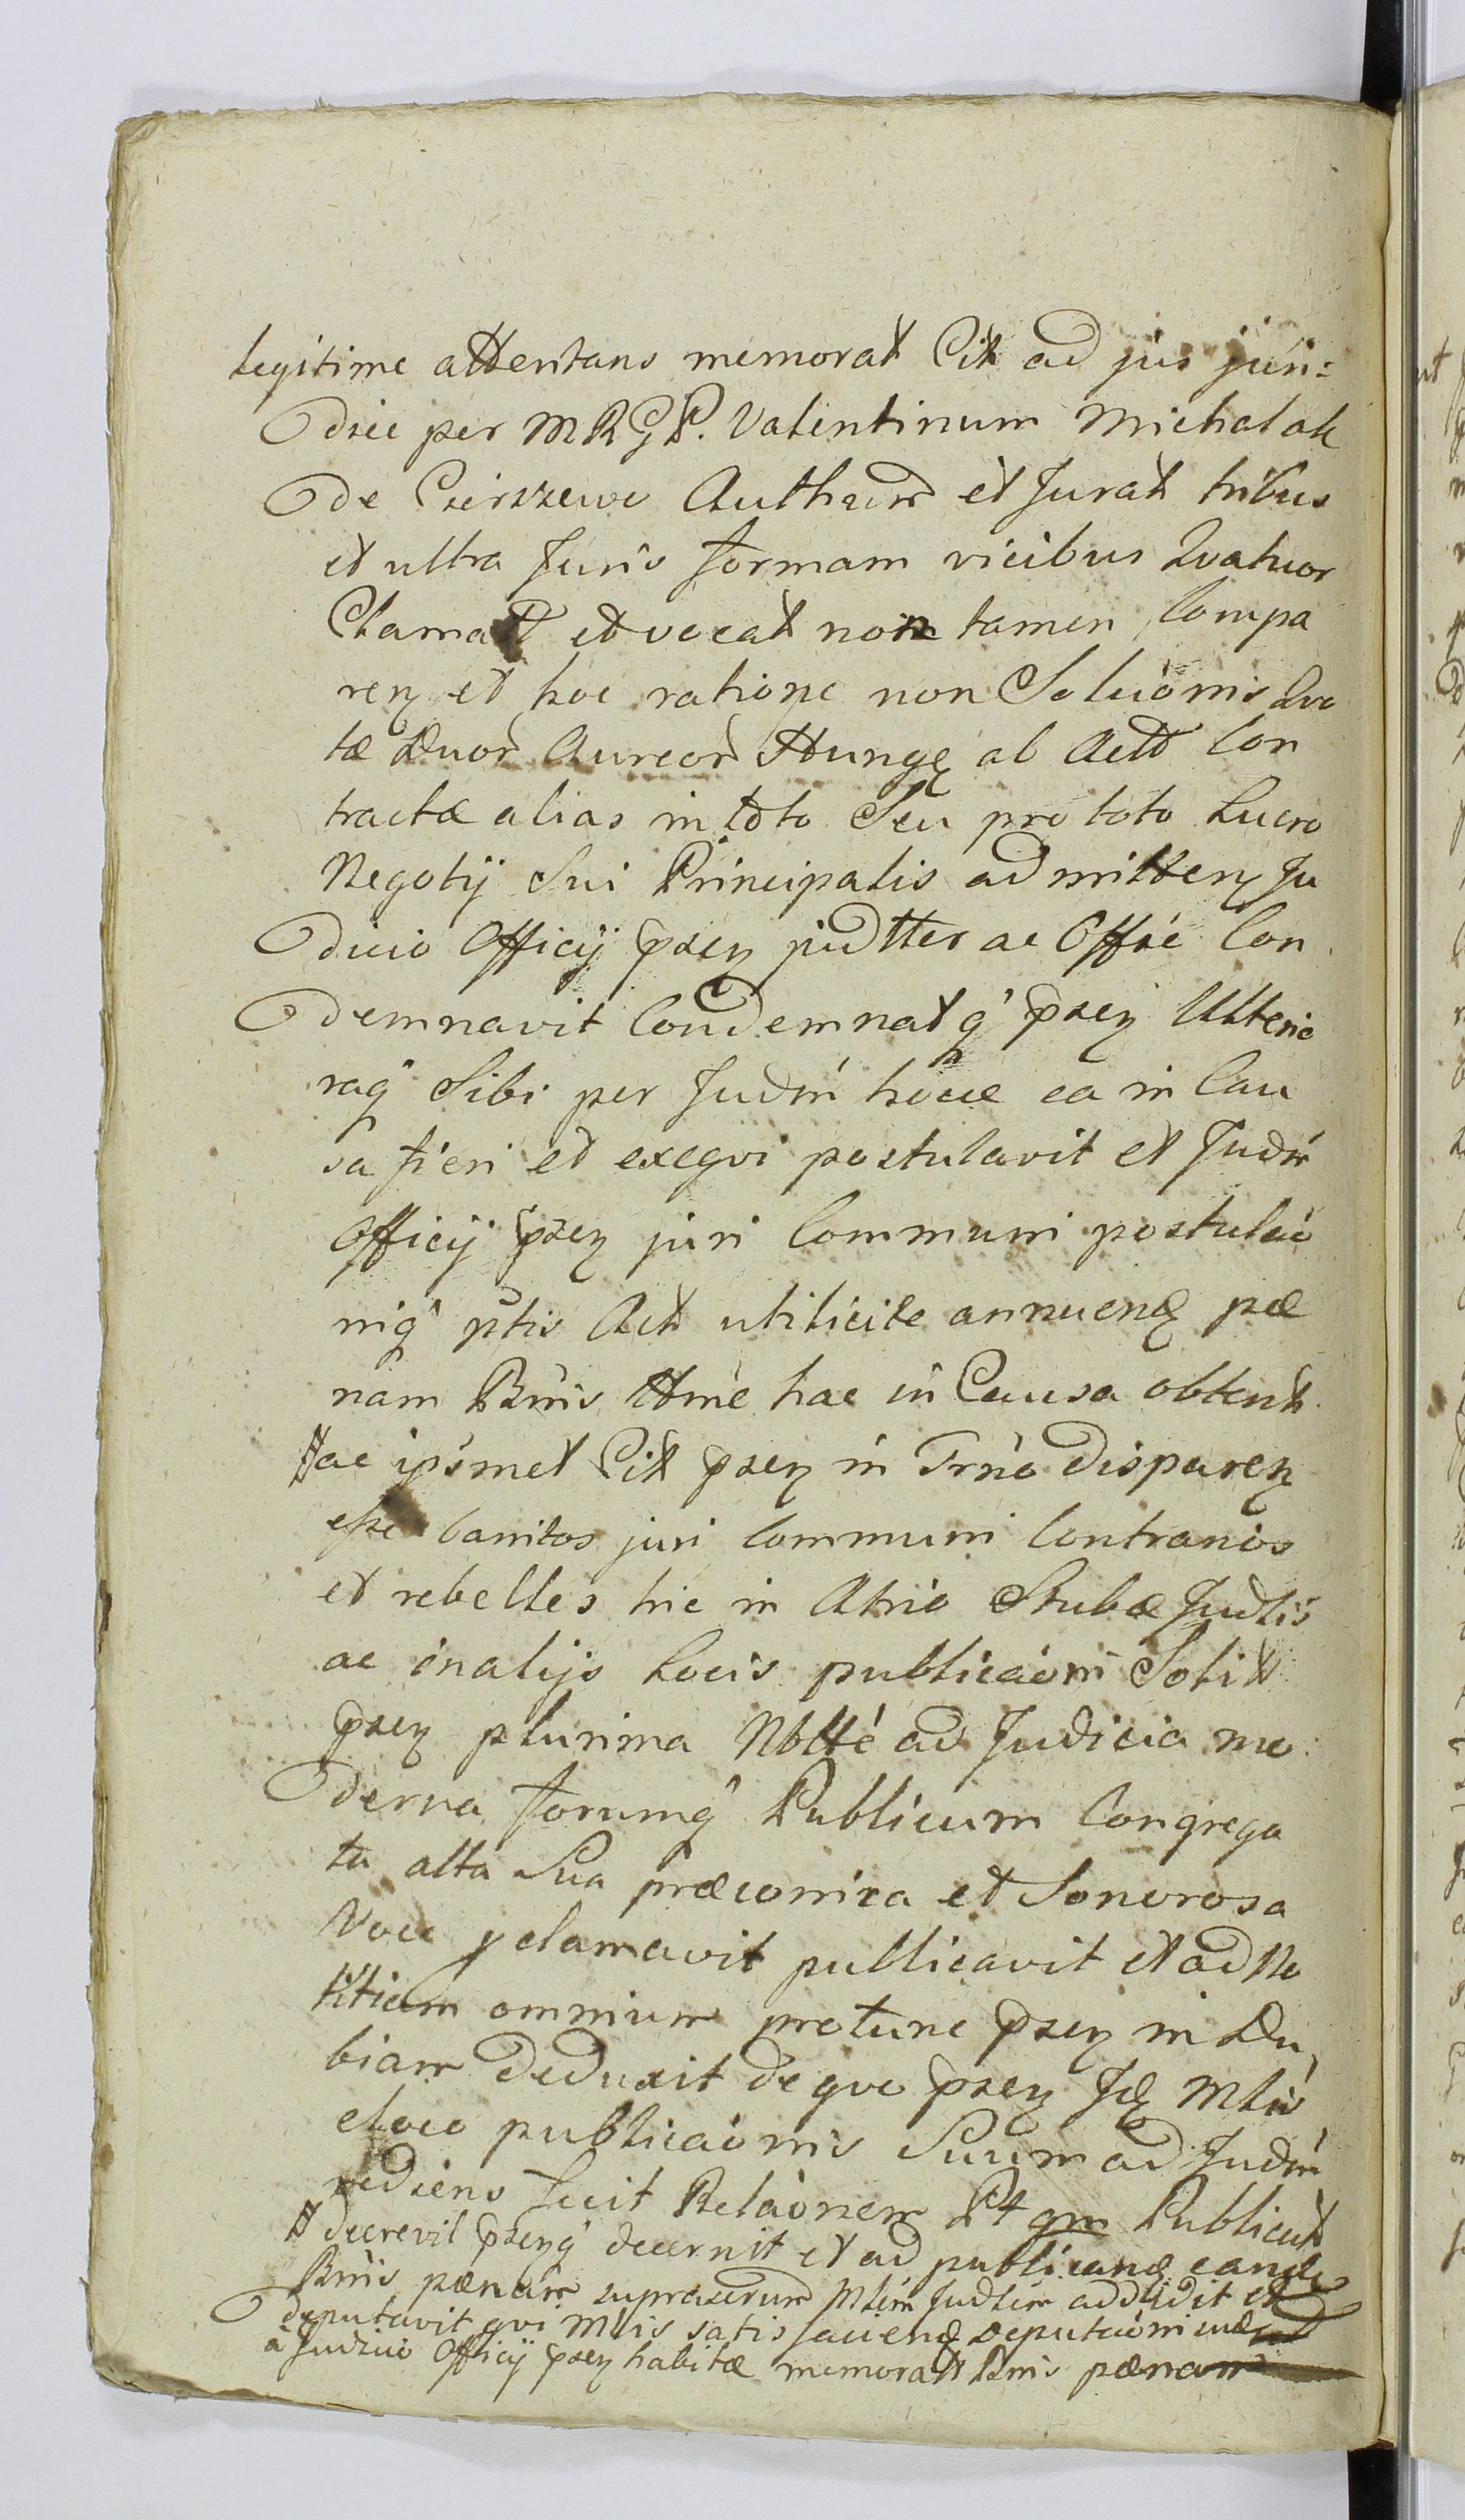 legitime attentans memorat Cit ad jus juri=
dice per MRGP. Valentinum Michalak
de Cierszewo Authum et Jurat tribus
et ultra Juris formam vicibus Qvatuor
Clamat et vocat non tamen Compa
ren et hoc ratione non Soluonis Qvo
tæ Duor Aureor Hung ab Act Con
tractæ alias in toto Seu pro toto Lucro
Negotij Sui Principalis admitten Ju
dicio Officij pzen judtter ac Offze Con
demnavit Condemnatq pzen Ulterio
raq Sibi per Judm hocce ea in Cau
sa fieri et exeqvi postulavit et Judm
Officij pzen juri Communi postulao
niq ptis Act utilicite annuend pæ
nam Bnis Hme hac in Causa obtent
ac ipsmet Cit pzen in Trno disparen
esse banitos juri Communi Contrarios
et rebelles hic in Atrio Stubæ Judlis
ac in alijs Locis publicaoni Solit
pzen plurima Nbltte ad Judicia mo
derna forumq Publicum Congrega
ta alta Sua præconica et Sonorosa
Voce pclamavit publicavit et ad No
titiam omnium protunc pzen in Du
biam deduxit de qvo pzen Id Mlis
eloco publicaonis Suum ad Judm
rediens fecit Relaonem Pt qm Publicat
decrevit pzenq decernit et ad publicand eand
Bnis pænam suprascrum Mlem Judlem addidit et
deputavit qvi Mlis satisfaciend deputaoni
a Judicio Officij pzen habitæ memorat Bnis pænam